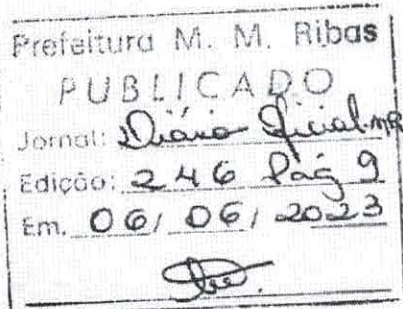 Prefeitura M. M. Ribas
PUBLICADO
Jornal: Diário Oficial MR
Edição: 246 Pág 9
Em, 06/ 06/ 2023